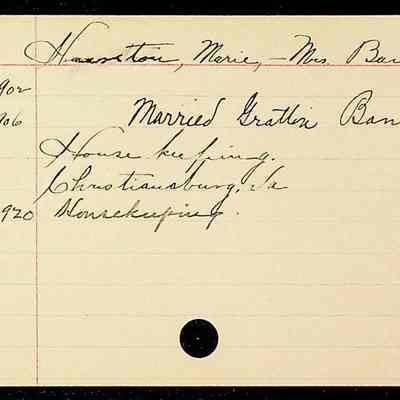 Houston, Marie, - Mrs. Ban
902
906 Married Grattin Ban
House keeping.
Christiansburg, Va
920 Housekeeping.